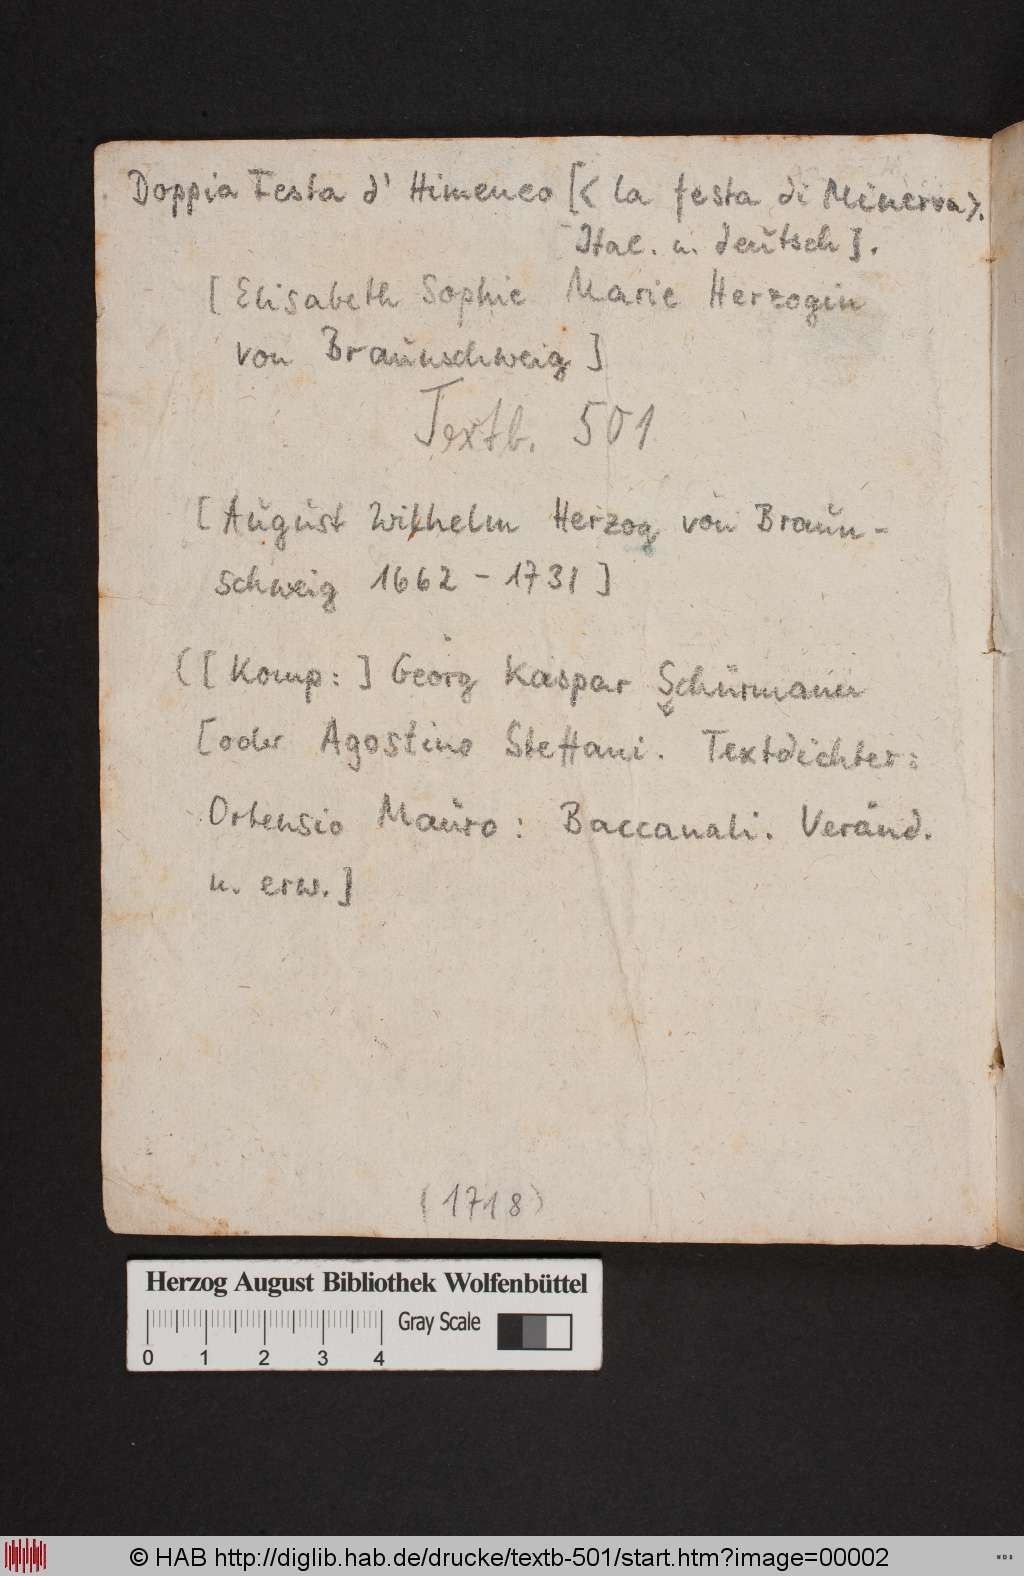 Doppia Festa d' Himeneo [< la festa di Minerva>.
Ital. u. deutsch].
[Elisabeth Sophie Marie Herzogin
von Braunschweig]
Textb. 501
[August Wilhelm Herzog von Braun-
schweig 1662 - 1731]
([Komp:] Georg Kaspar Schürmann
[oder Agostino Steffani. Textdichter:
Ortensio Mauro: Baccanali. Veränd.
u. erw.]
(1718)
Herzog August Bibliothek Wolfenbüttel
Gray Scale
0 1 2 3 4
© HAB http://diglib.hab.de/drucke/textb-501/start.htm?image=00002